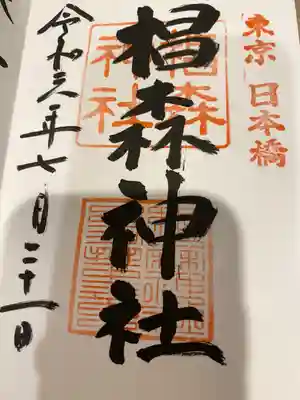 東京 日本橋
椙森神社
椙森
神社
令和三年七月二十一日